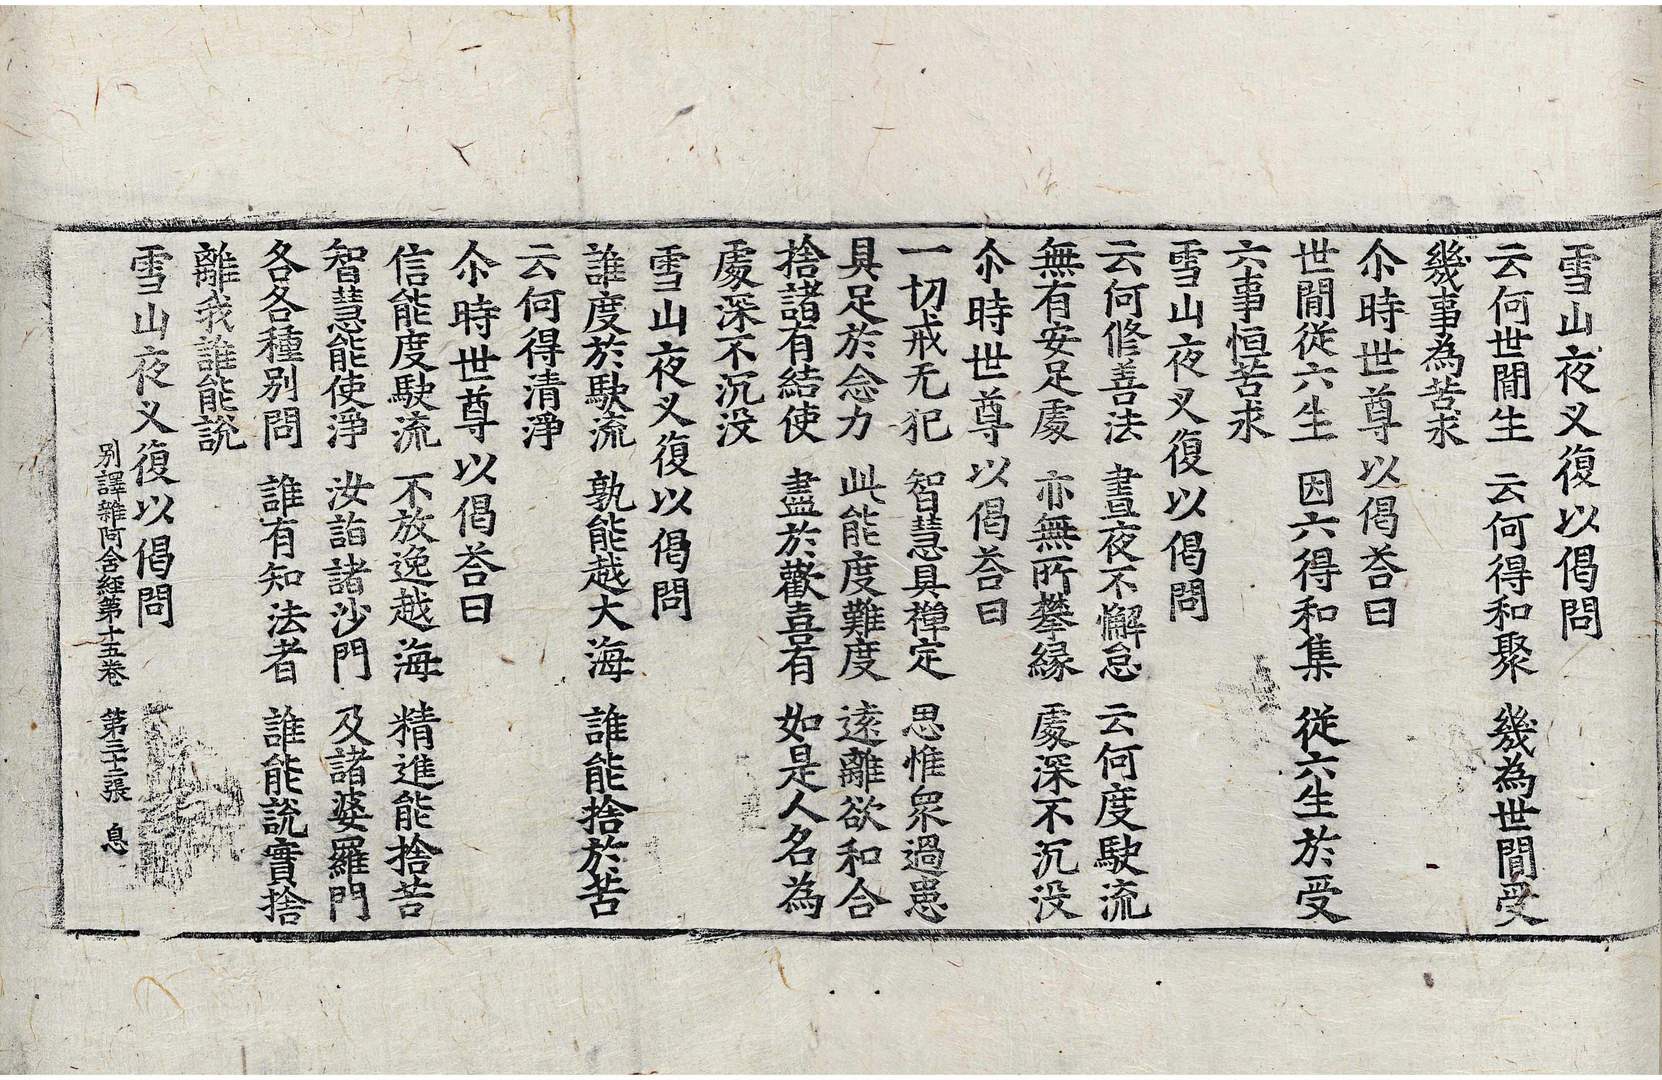 雪山夜叉復以偈問
云何世間生　云何得和聚　幾為世間受
幾事為苦求
尒時世尊以偈荅曰
世間從六生　因六得和集　從六生於受
六事恒苦求
雪山夜叉復以偈問
云何修善法　晝夜不懈怠　云何度駛流
無有安足處　亦無所攀縁　處深不沉没
尒時世尊以偈荅曰
一切戒无犯　智慧具禪定　思惟衆過患
具足於念力　此能度難度　遠離欲和合
捨諸有結使　盡於歡喜有　如是人名為
處深不沉没
雪山夜叉復以偈問
誰度於駛流　孰能越大海　誰能捨於苦
云何得清淨
尒時世尊以偈荅曰
信能度駛流　不放逸越海　精進能捨苦
智慧能使淨　汝詣諸沙門　及諸婆羅門
各各種別問　誰有知法者　誰能說實捨
離我誰能說
雪山夜叉復以偈問
別譯雜阿含經第十五卷　第三十二張　息